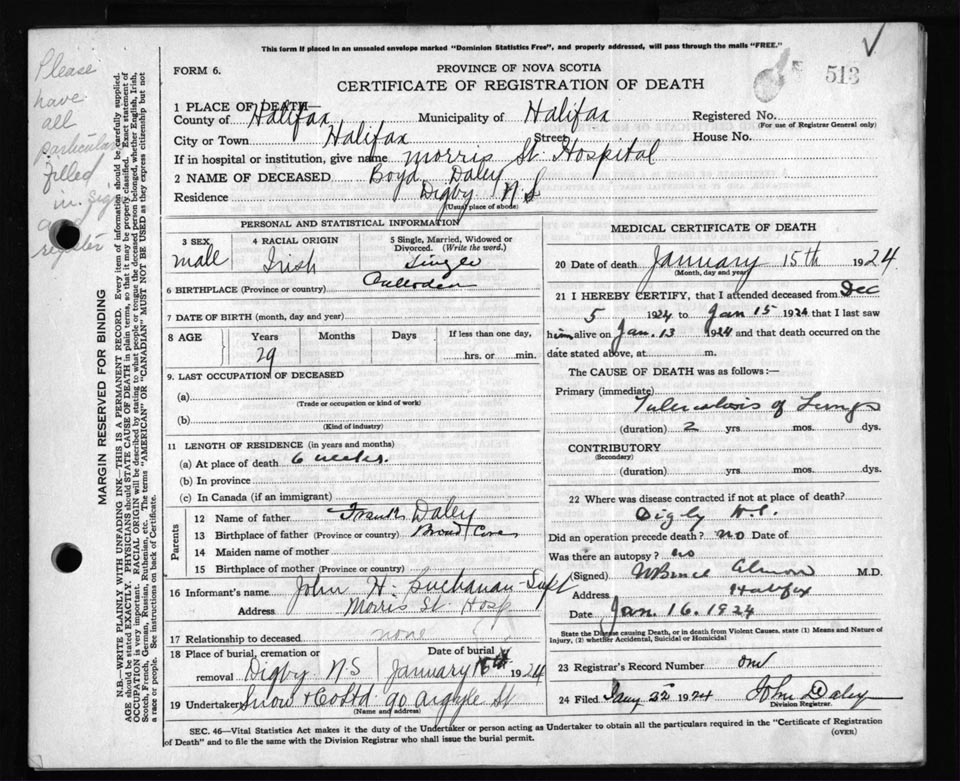 This form if placed in an unsealed envelope marked "Dominion Statistics Free", and properly addressed, will pass through the mails "FREE."
FORM 6.
PROVINCE OF NOVA SCOTIA
513
CERTIFICATE OF REGISTRATION OF DEATH
Please have all particulars filled in. Sign and register
MARGIN RESERVED FOR BINDING
N.B.—WRITE PLAINLY WITH UNFADING INK—THIS IS A PERMANENT RECORD. Every item of information should be carefully supplied.
AGE should be stated EXACTLY. PHYSICIANS should STATE CAUSE OF DEATH in plain terms, so that it may be properly classified. Exact statement of
OCCUPATION is very important. RACIAL ORIGIN will be described by stating to what people or tongue the deceased person belonged, whether English, Irish,
Scotch, French, German, Russian, Ruthenian, etc. The terms "AMERICAN" OR "CANADIAN" MUST NOT BE USED as they express citizenship but not
a race or people. See instructions on back of Certificate.
1 PLACE OF DEATH—
County of Halifax Municipality of Halifax Registered No.
(For use of Registrar General only)
City or Town Halifax Street House No.
If in hospital or institution, give name Morris St. Hospital
2 NAME OF DECEASED Boyd Daley
Residence Digby N.S
(Usual place of abode)
PERSONAL AND STATISTICAL INFORMATION
3 SEX male
4 RACIAL ORIGIN Irish
5 Single, Married, Widowed or Divorced. (Write the word.) Single
6 BIRTHPLACE (Province or country) Culloden
7 DATE OF BIRTH (month, day and year)
8 AGE Years Months Days If less than one day,
29 hrs. or min.
9. LAST OCCUPATION OF DECEASED
(a)
(Trade or occupation or kind of work)
(b)
(Kind of industry)
11 LENGTH OF RESIDENCE (in years and months)
(a) At place of death 6 weeks.
(b) In province
(c) In Canada (if an immigrant)
Parents
12 Name of father Frank Daley
13 Birthplace of father (Province or country) Broad Cove
14 Maiden name of mother
15 Birthplace of mother (Province or country)
16 Informant's name John H. Buchanan-Supt
Address Morris St. Hosp
17 Relationship to deceased none
18 Place of burial, cremation or removal Digby NS
Date of burial January 1924
19 Undertaker Snow & Co Ltd 90 Argyle St
(Name and address)
MEDICAL CERTIFICATE OF DEATH
20 Date of death January 15th 1924
(Month, day and year)
21 I HEREBY CERTIFY, that I attended deceased from Dec
5 1924 to Jan 15 1924 that I last saw
him alive on Jan. 13 1924 and that death occurred on the
date stated above, at m.
The CAUSE OF DEATH was as follows:—
Primary (immediate)
Tuberculosis of Lungs
(duration) 2 yrs mos. dys.
CONTRIBUTORY
(Secondary)
(duration) yrs mos. dys.
22 Where was disease contracted if not at place of death?
Digby N.S.
Did an operation precede death? no Date of
Was there an autopsy? no
(Signed) W Bruce Almon M.D.
Address Halifax
Date Jan. 16. 1924
State the Disease causing Death, or in death from Violent Causes, state (1) Means and Nature of
Injury, (2) whether Accidental, Suicidal or Homicidal
23 Registrar's Record Number
24 Filed Jany 22 1924 John Daley
Division Registrar.
SEC. 46—Vital Statistics Act makes it the duty of the Undertaker or person acting as Undertaker to obtain all the particulars required in the "Certificate of Registration
of Death" and to file the same with the Division Registrar who shall issue the burial permit.
(OVER)